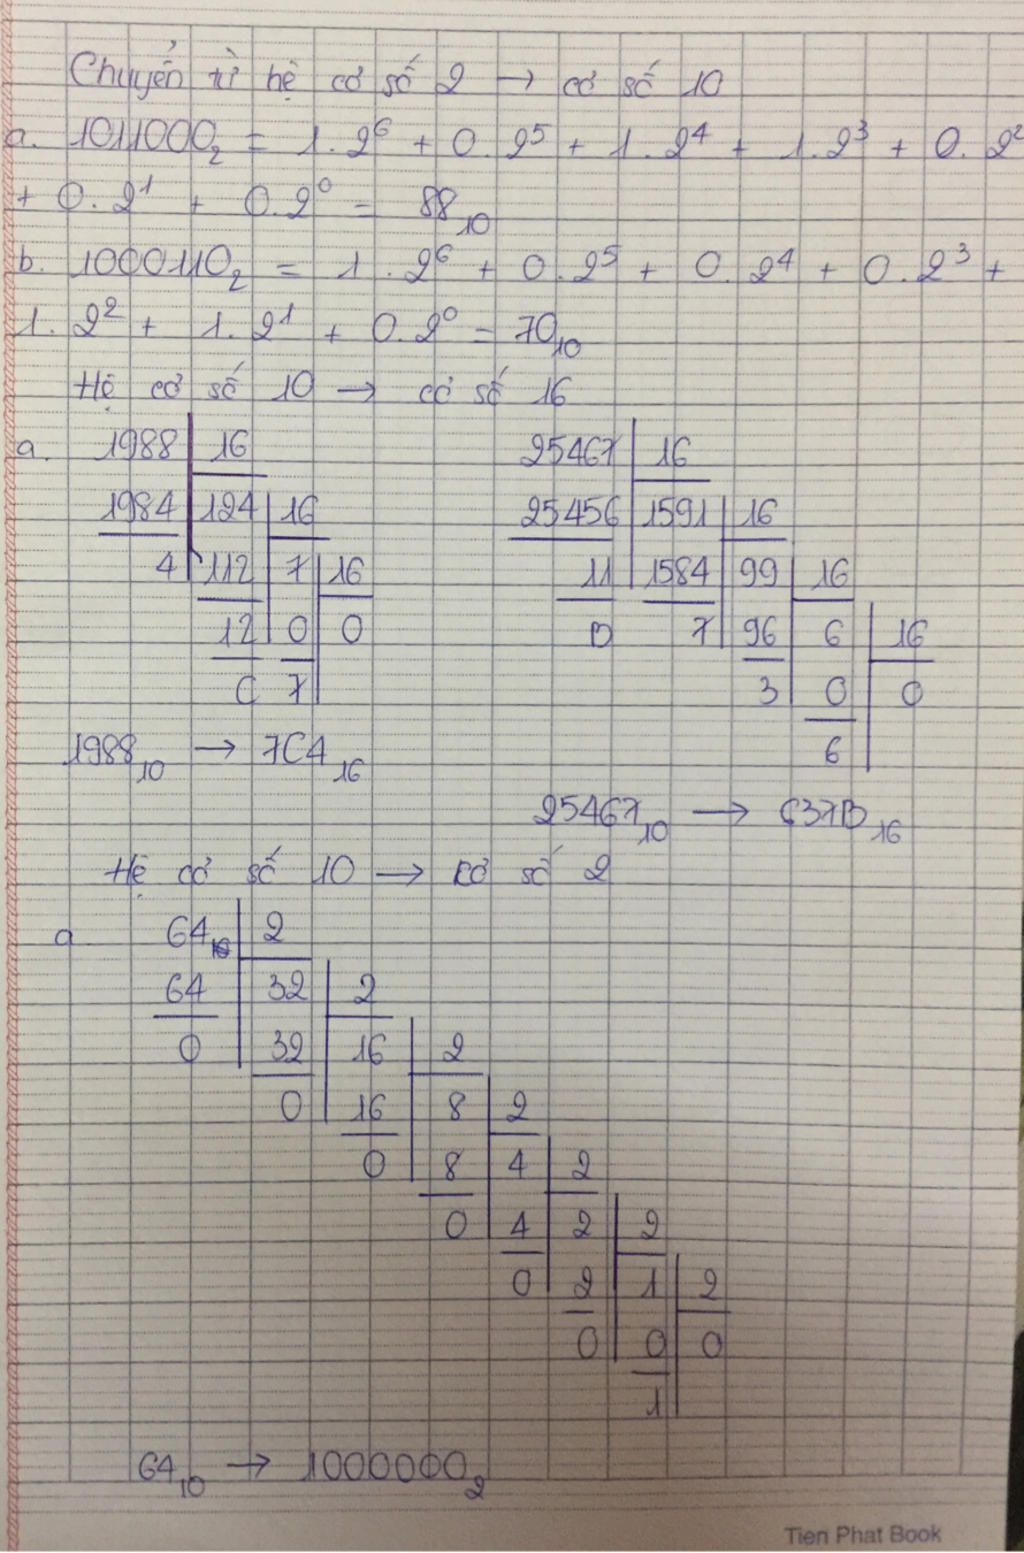 Chuyển từ hệ cơ số 2 → cơ số 10
a. 1011000₂ = 1.2⁶ + 0.2⁵ + 1.2⁴ + 1.2³ + 0.2²
+ 0.2¹ + 0.2⁰ = 88₁₀
b. 1000110₂ = 1.2⁶ + 0.2⁵ + 0.2⁴ + 0.2³ +
1.2² + 1.2¹ + 0.2⁰ = 70₁₀
Hệ cơ số 10 → cơ số 16
a. 1988 16 25467 16
1984 124 16 25456 1591 16
4 112 7 16 11 1584 99 16
12 0 0 B 7 96 6 16
C 7 3 0 0
6
1988₁₀ → 7C4₁₆
25467₁₀ → 637B₁₆
Hệ cơ số 10 → cơ số 2
a 64₁₀ 2
64 32 2
0 32 16 2
0 16 8 2
0 8 4 2
0 4 2 2
0 2 1 2
0 0 0
1
64₁₀ → 1000000₂
Tien Phat Book